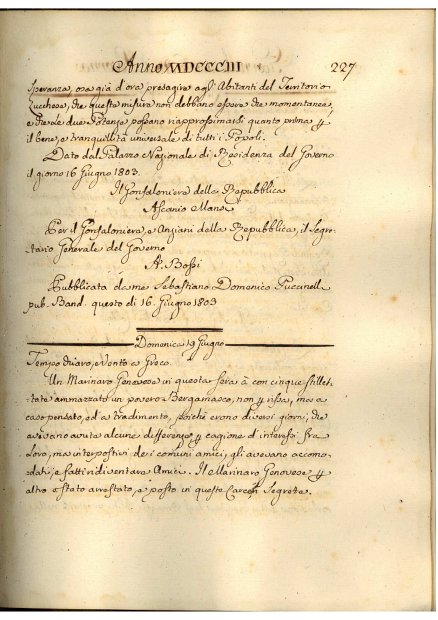 Anno MDCCCIII 227
Speranza, osa già d'ora presagire agl'Abitanti del Territorio
Lucchese, che queste misure non debbano essere che momentanee,
e che le due Potenze possano riapprossimarsi quanto prima p
il bene, e tranquillità universale di tutti i Popoli.
Dato dal Palazzo Nazionale di Residenza del Governo
il giorno 16 Giugno 1803.
Il Gonfaloniere della Repubblica
Ascanio Mansi
Per il Gonfaloniere, e Anziani della Repubblica, il Segre-
tario Generale del Governo
A. Bossi
Pubblicata da me Sebastiano Domenico Puccinelli
pub. Band. questo dì 16. Giugno 1803
Domenica 19 Giugno
Tempo chiaro, e Vento a Greco.
Un Marinaro Genovese in questa sera à con cinque stillet-
tate ammazzato un povero Bergamasco, non p rissa, ma a
caso pensato, ed a tradimento, poichè erono diversi giorni, che
avevano avuta alcune differenze p cagione d'interessi fra
loro, ma interpostivi dei comuni amici, gli avevano accomo-
dati, e fatti ridiventare Amici. Il Marinaro Genovese p
altro è stato arrestato, e posto in queste Carceri Segrete.